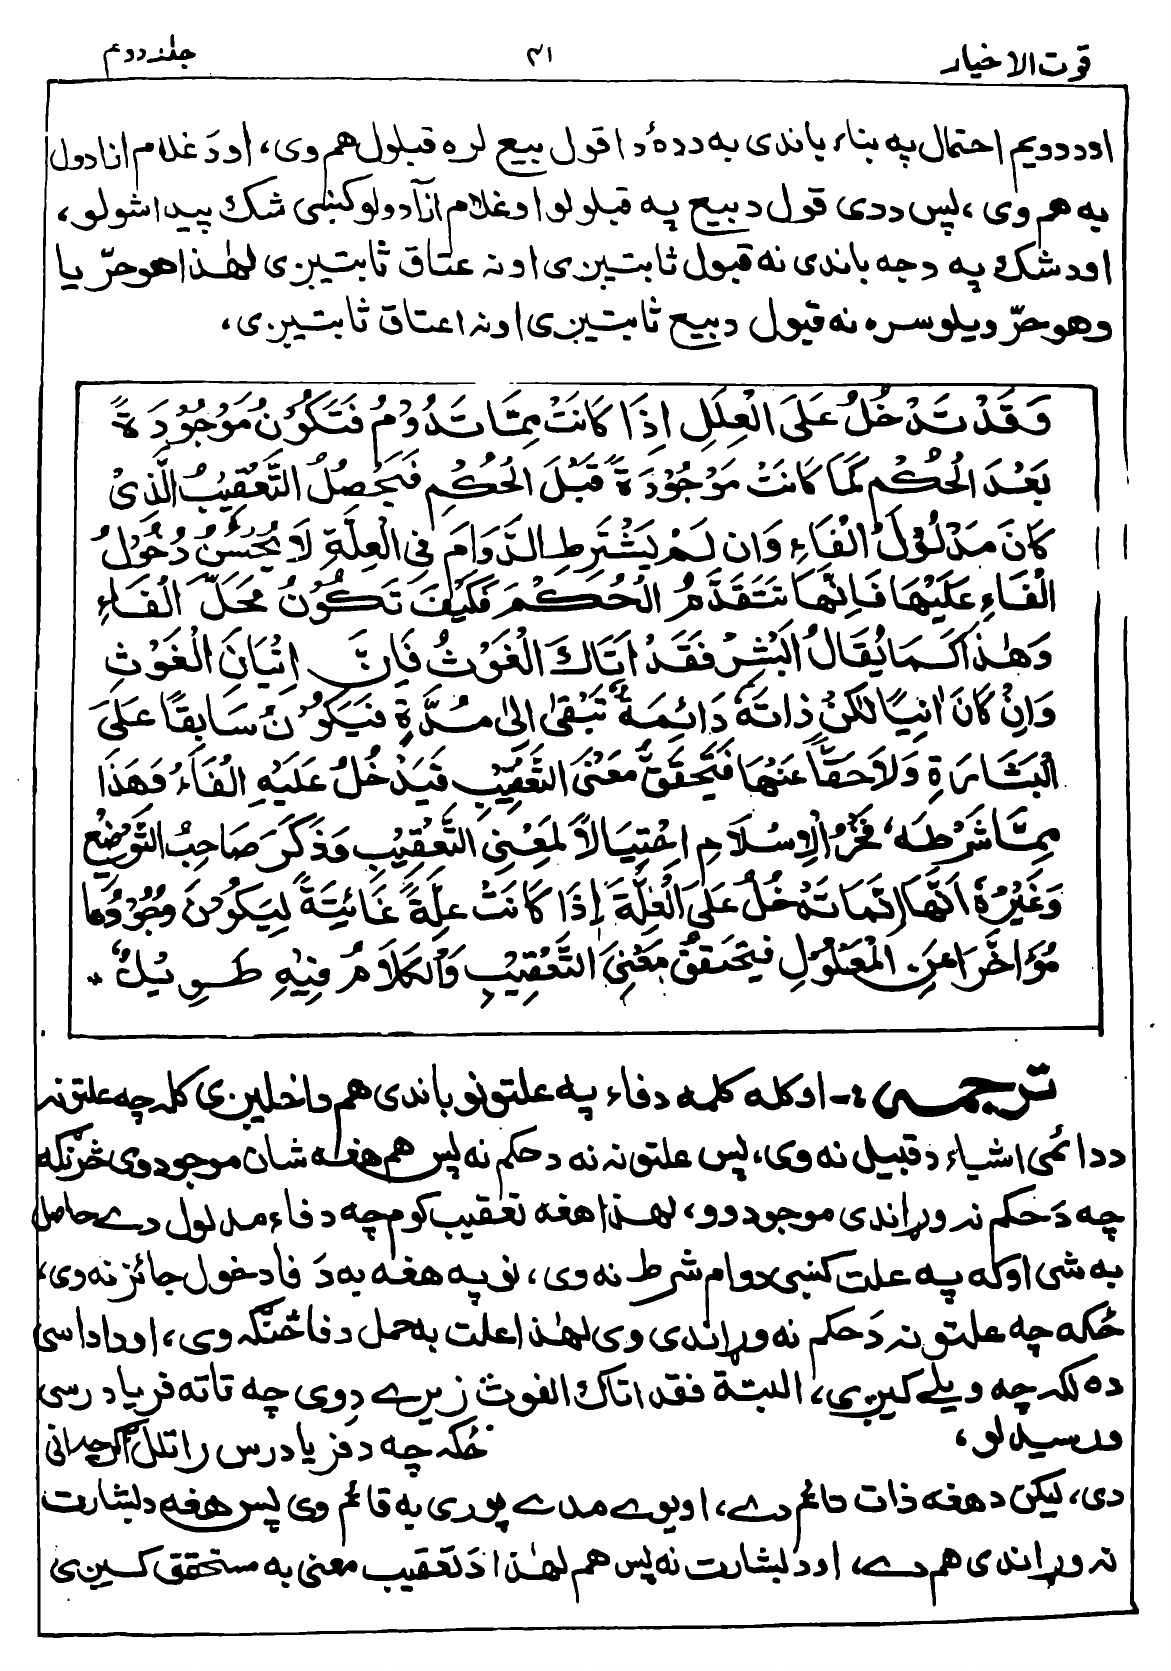 قوت الاخیار ۴۱ جلد دوم
اود دویم احتمال په بناء باندی به دده دا قول بیع لره قبلول هم وی، اود غلام انا دول
به هم وی، پس ددی قول د بیع په قبلولو او غلام آزادولو کښی شک پیدا شولو،
اود شک په وجه باندی نه قبول ثابتیږی او نه عتاق ثابتیږی لهٰذا هو حرّ یا
وهو حرّ ویلو سره نه قبول د بیع ثابتیږی او نه اعتاق ثابتیږی،
وَقَدْ تَدْخُلُ عَلَى الْعِلَلِ اِذَا كَانَتْ مِمَّا تَدُوْمُ فَتَكُوْنُ مَوْجُوْدَةً
بَعْدَ الْحُكْمِ كَمَا كَانَتْ مَوْجُوْدَةً قَبْلَ الْحُكْمِ فَيَحْصُلُ التَّعْقِيْبُ الَّذِىْ
كَانَ مَدْلُوْلَ الْفَاءِ وَاِنْ لَمْ يَشْتَرِطِ الدَّوَامَ فِى الْعِلَّةِ لَا يَحْسُنُ دُخُوْلُ
الْفَاءِ عَلَيْهَا فَاِنَّهَا تَتَقَدَّمُ الْحُكْمَ فَكَيْفَ تَكُوْنُ مَحَلَّ الْفَاءِ
وَهٰذَا كَمَا يُقَالُ اَبْشِرْ فَقَدْ اَتَاكَ الْغَوْثُ فَاِنَّ اِتْيَانَ الْغَوْثِ
وَاِنْ كَانَ اٰنِيًا لٰكِنْ ذَاتَهُ دَائِمَةٌ تَبْقٰى اِلٰى مُدَّةٍ فَيَكُوْنُ سَابِقًا عَلَى
الْبَشَارَةِ وَلَاحِقًا عَنْهَا فَيَتَحَقَّقُ مَعْنَى التَّعْقِيْبِ فَيَدْخُلُ عَلَيْهِ الْفَاءُ وَهٰذَا
مِمَّا شَرْطَهُ فَخْرُ الْاِسْلَامِ اِحْتِيَالًا لِمَعْنِى التَّعْقِيْبِ وَذَكَرَ صَاحِبُ التَّوْضِيْحِ
وَغَيْرُهُ اَنَّهَا اِنَّمَا تَدْخُلُ عَلَى الْعِلَّةِ اِذَا كَانَتْ عِلَّةً غَائِيَّةً لِيَكُوْنَ وُجُوْدُهَا
مُؤَاخَّرًا عَنِ الْمَعْلُوْلِ فَيَتَحَقَّقُ مَعْنَى التَّعْقِيْبِ وَالْكَلَامُ فِيْهِ طَوِيْلٌ *
ترجمه :- او کله کلمه د فاء په علتونو باندی هم داخلیږی کله چه علتونه
د دائمی اشیاء د قبیل نه وی، پس علتونه نه د حکم نه پس هم هغه شان موجود وی څرنګه
چه دَ حکم نه وړاندی موجود وو، لهٰذا هغه تعقیب کوم چه د فاء مدلول دے حاصل
به شی او که په علت کښی دوام شرط نه وی، نو په هغه به دَ فا دخول جائز نه وی،
ځکه چه علتونه دَ حکم نه وړاندی وی لهٰذا علت به محل د فا څنګه وی، او دا داسی
ده لکه چه ویلے کیږی، البتة فقد اتاك الغوث زیرے دِ وی چه تا ته فریاد رسی
ورسیدلو، ځکه چه د فریاد رس راتلل اګرچه آنی
دی، لیکن د هغه ذات دائم دے، او یوے مدے پوری به قائم وی پس هغه د بشارت
نه وړاندی هم دے، اود بشارت نه پس هم لهٰذا دَ تعقیب معنی به متحقق کیږی